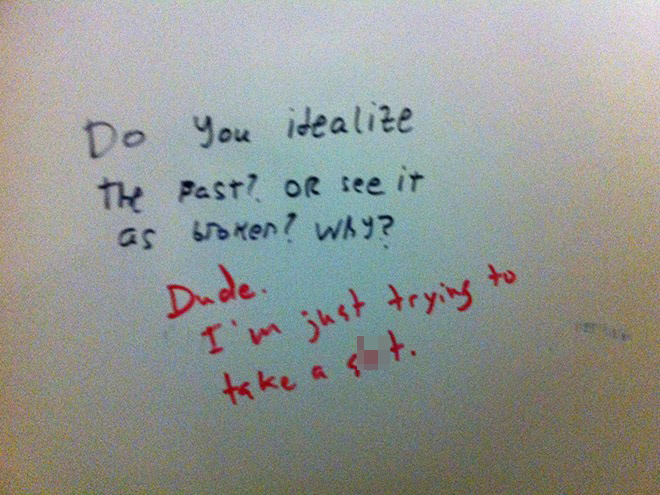 Do you idealize
the past? OR see it
as broken? Why?
Dude.
I'm just trying to
take a s t.